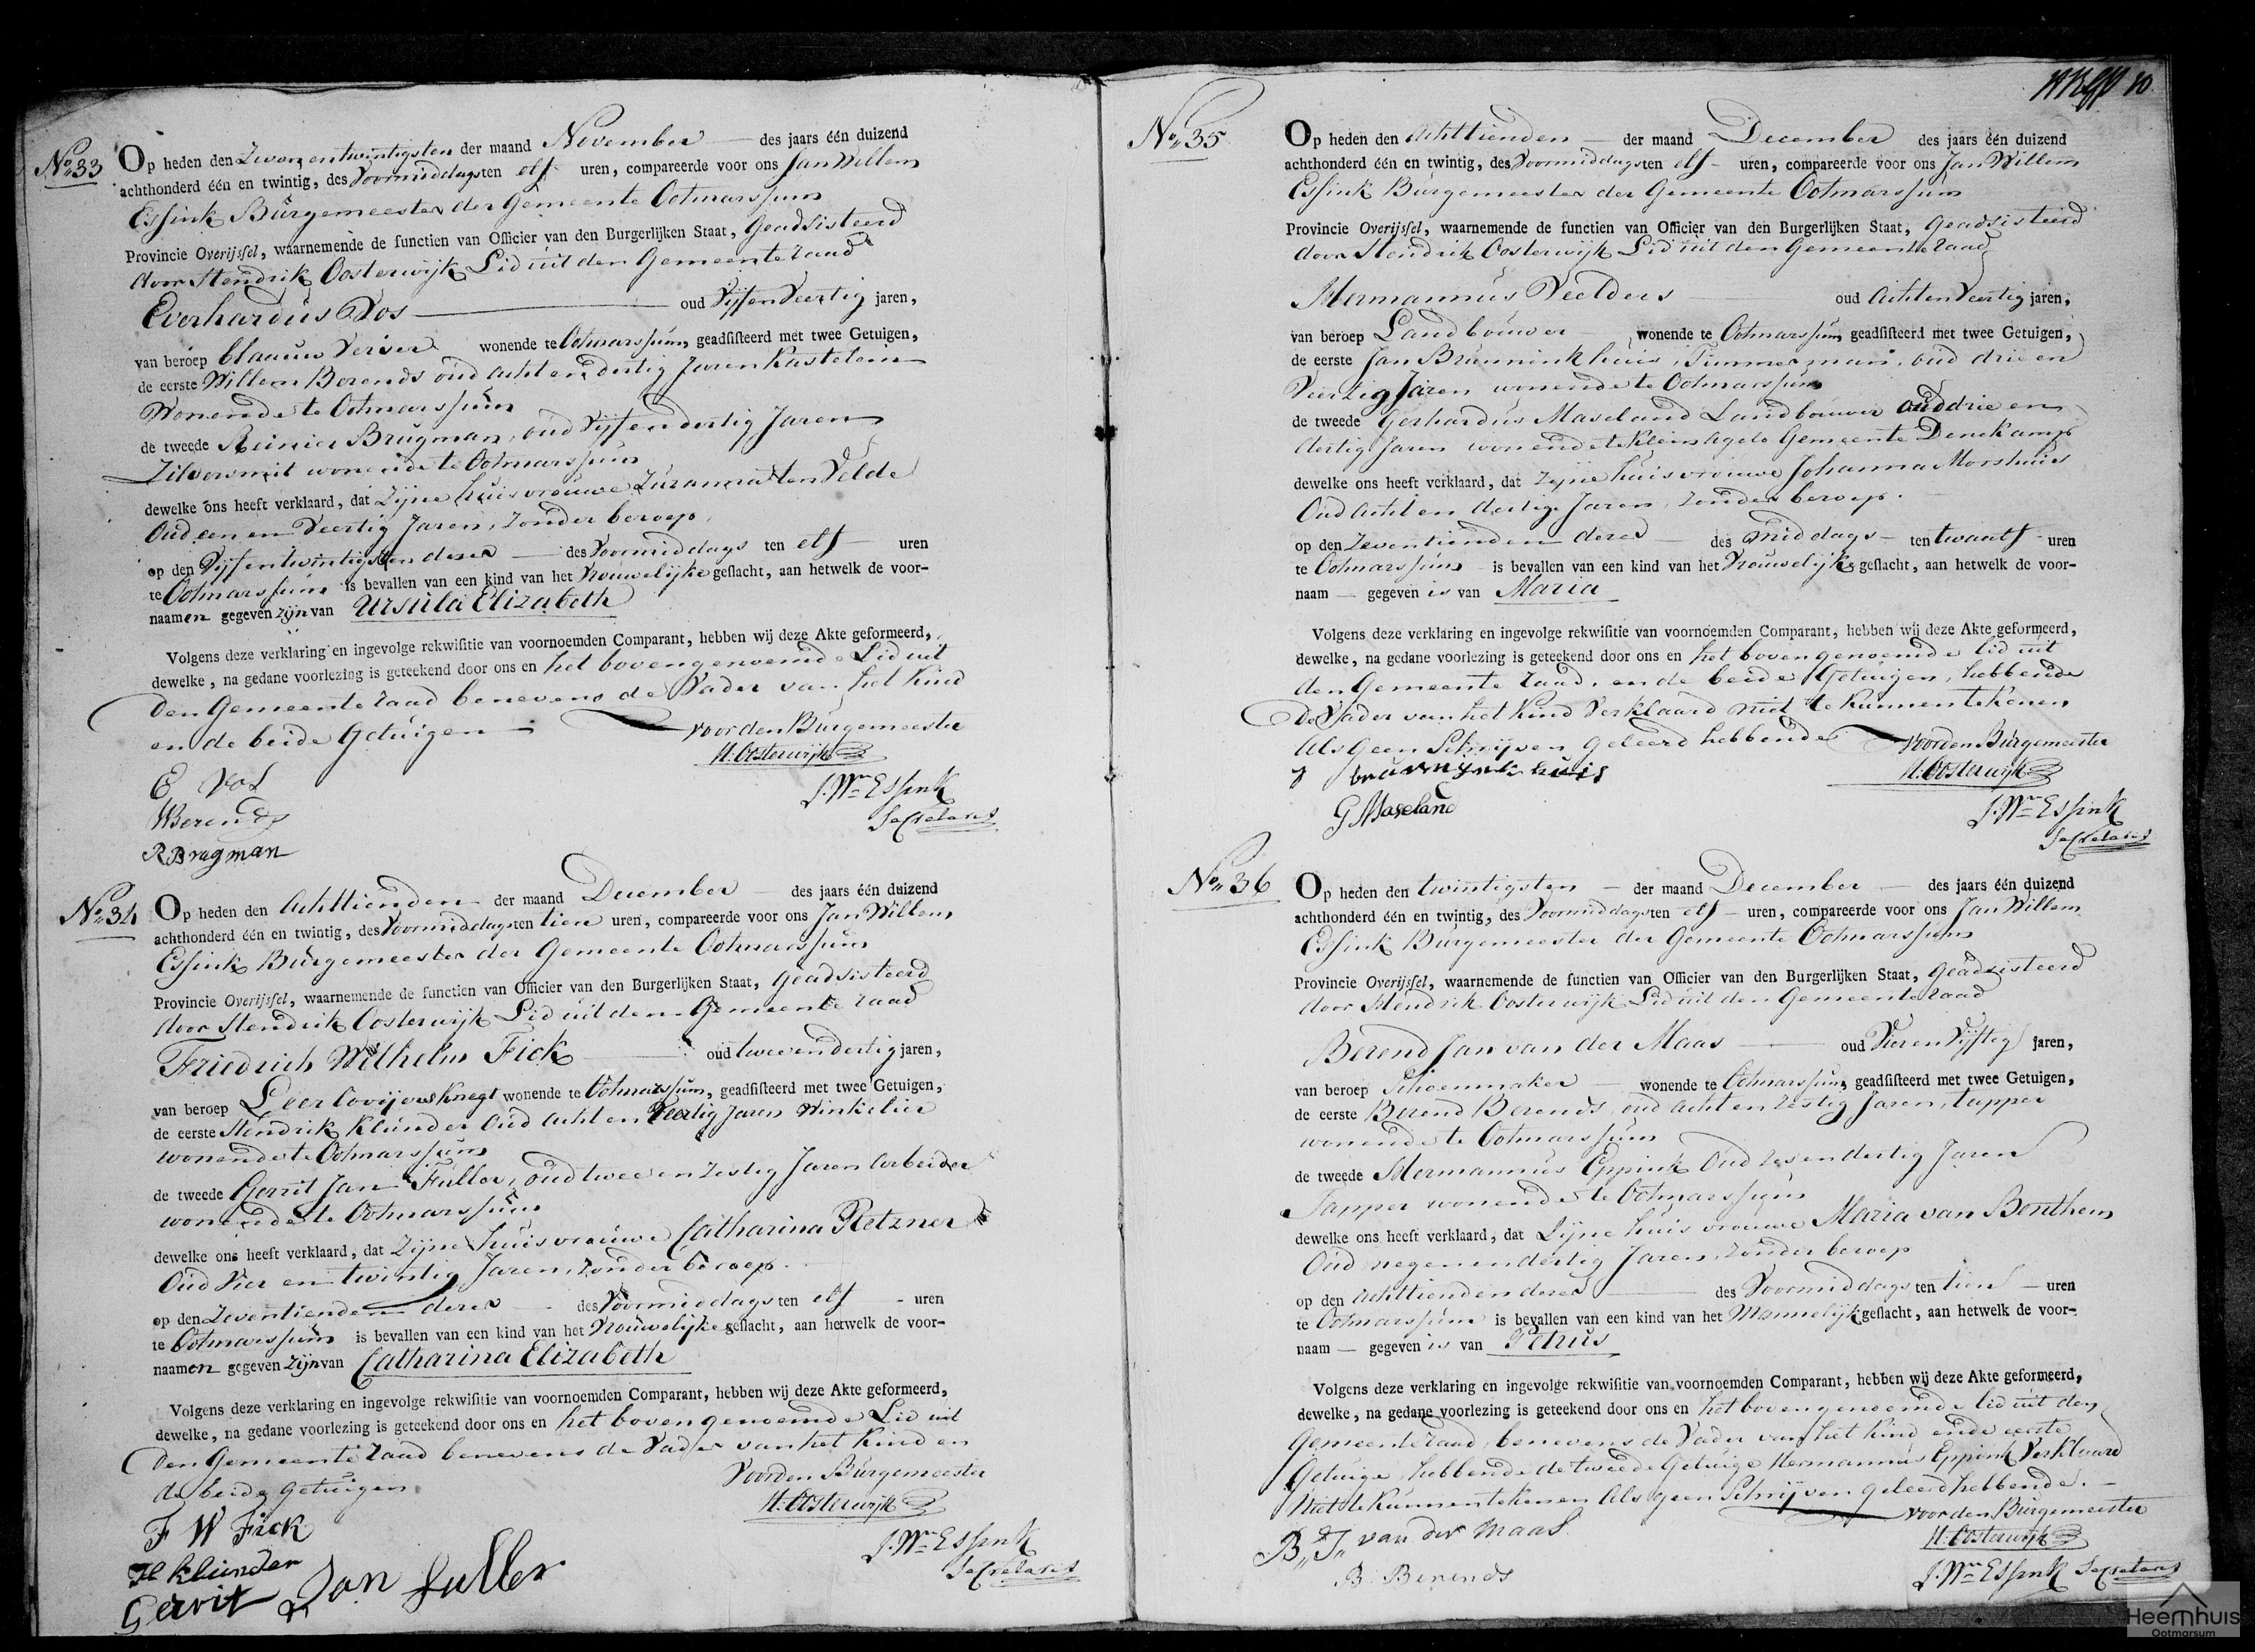 No. 33
Op heden den Zevenentwintigsten der maand November des jaars één duizend
achthonderd één en twintig, des Voormiddags ten elf uren, compareerde voor ons Jan Willem
Essink Burgemeester der Gemeente Ootmarssum
Provincie Overijssel, waarnemende de functien van Officier van den Burgerlijken Staat, Geadsisteerd
door Hendrik Oosterwijk Lid uit den Gemeente raad
Everhardus Vos oud Vijf en Veertig jaren,
van beroep blaauw Verver wonende te Ootmarssum, geadsisteerd met twee Getuigen,
de eerste Willem Berends oud acht en dertig Jaren Kastelein
Wonende te Ootmarssum
de tweede Reinier Brugman, oud Vijf en dertig Jaren
Zilversmit wonende te Ootmarssum
dewelke ons heeft verklaard, dat Zijne huisvrouwe Zuzanna ten Velde
Oud een en Veertig Jaren, Zonder beroep,
op den Vijfentwintigsten dezer des Voormiddags ten elf uren
te Ootmarssum is bevallen van een kind van het Vrouwelijke geslacht, aan hetwelk de voor-
naamen gegeven zijn van Ursula Elizabeth
Volgens deze verklaring en ingevolge rekwisitie van voornoemden Comparant, hebben wij deze Akte geformeerd,
dewelke, na gedane voorlezing is geteekend door ons en het bovengenoemde Lid uit
den Gemeente raad benevens de Vader van het Kind
en de beide Getuigen
Voor den Burgemeester
H. Oosterwijk
E Vos
J. Wm Essink
WBerends
Secretaris
R Brugman
No. 34
Op heden den Achttienden der maand December des jaars één duizend
achthonderd één en twintig, des Voormiddags ten tien uren, compareerde voor ons Jan Willem
Essink Burgemeester der Gemeente Ootmarssum
Provincie Overijssel, waarnemende de functien van Officier van den Burgerlijken Staat, Geadsisteerd
door Hendrik Oosterwijk Lid uit den Gemeente raad
Friedrich Wilhelm Fick oud twee en dertig jaren,
van beroep Leerlooijersknegt wonende te Ootmarssum, geadsisteerd met twee Getuigen,
de eerste Hendrik Klunder Oud acht en Veertig Jaren Winkelier
wonende te Ootmarssum
de tweede Gerrit Jan Fuller, oud twee en zestig Jaren Arbeider
wonende te Ootmarssum
dewelke ons heeft verklaard, dat Zijne huisvrouwe Catharina Pletzner
Oud Vier en twintig Jaren, Zonder beroep.
op den Zeventienden dezer des Voormiddags ten elf uren
te Ootmarssum is bevallen van een kind van het Vrouwelijke geslacht, aan hetwelk de voor-
naamen gegeven zijn van Catharina Elizabeth
Volgens deze verklaring en ingevolge rekwisitie van voornoemden Comparant, hebben wij deze Akte geformeerd,
dewelke, na gedane voorlezing is geteekend door ons en het bovengenoemde Lid uit
den Gemeente raad benevens de Vader van het Kind en
de beide Getuigen
Voor den Burgemeester
H. Oosterwijk
F W Fick
J. Wm Essink
H klunder
Secretaris
Gerrit Jan fuller
10
No. 35
Op heden den Achttienden der maand December des jaars één duizend
achthonderd één en twintig, des Voormiddags ten elf uren, compareerde voor ons Jan Willem
Essink Burgemeester der Gemeente Ootmarssum
Provincie Overijssel, waarnemende de functien van Officier van den Burgerlijken Staat, Geadsisteerd
door Hendrik Oosterwijk Lid uit den Gemeente raad
Hermannus Veelders oud Acht en Veertig jaren,
van beroep Landbouwer wonende te Ootmarssum, geadsisteerd met twee Getuigen,
de eerste Jan Brunninkhuis, Timmerman, oud drie en
Veertig Jaren wonende te Ootmarssum
de tweede Gerhardus Maseland Landbouwer oud drie en
dertig Jaren wonende te Klein Agelo Gemeente Denekamp
dewelke ons heeft verklaard, dat Zijne huisvrouwe Johanna Morshuis
Oud Acht en dertig Jaren, Zonder beroep.
op den Zeventienden dezer des Middags ten twaalf uren
te Ootmarssum is bevallen van een kind van het Vrouwelijke geslacht, aan hetwelk de voor-
naam gegeven is van Maria
Volgens deze verklaring en ingevolge rekwisitie van voornoemden Comparant, hebben wij deze Akte geformeerd,
dewelke, na gedane voorlezing is geteekend door ons en het bovengenoemde lid uit
den Gemeente raad, en de beide Getuigen, hebbende
De Vader van het Kind Verklaard niet te Kunnen tekenen
Als Geen Schrijven geleerd hebbende
Voor den Burgemeester
J brunnynkhuis
H. Oosterwijk
G Maseland
J. Wm Essink
Secretaris
No. 36
Op heden den twintigsten der maand December des jaars één duizend
achthonderd één en twintig, des Voormiddags ten elf uren, compareerde voor ons Jan Willem
Essink Burgemeester der Gemeente Ootmarssum
Provincie Overijssel, waarnemende de functien van Officier van den Burgerlijken Staat, Geadsisteerd
door Hendrik Oosterwijk Lid uit den Gemeente raad
Berend Jan van der Maas oud Vier en Vijftig jaren,
van beroep Schoenmaker wonende te Ootmarssum, geadsisteerd met twee Getuigen,
de eerste Berend Berends, oud acht en zestig Jaren, tapper
wonende te Ootmarssum
de tweede Hermannus Eppink Oud zes en dertig Jaren
Tapper wonende te Ootmarssum
dewelke ons heeft verklaard, dat Zijne huisvrouwe Maria van Benthem
Oud negen en dertig Jaren, Zonder beroep
op den Achttienden dezer des Voormiddags ten tien uren
te Ootmarssum is bevallen van een kind van het Mannelijk geslacht, aan hetwelk de voor-
naam gegeven is van Petrus
Volgens deze verklaring en ingevolge rekwisitie van voornoemden Comparant, hebben wij deze Akte geformeerd,
dewelke, na gedane voorlezing is geteekend door ons en het bovengenoemde lid uit den
Gemeente raad, benevens de Vader van het Kind en de eerste
Getuige, hebbende de tweede Getuige Hermannus Eppink Verklaard
Niet te Kunnen tekenen Als geen Schrijven geleerd hebbende.
Voor den Burgemeester
B,, J,, van der Maas
H. Oosterwijk
B. Berends
J. Wm Essink Secretaris
Heemhuis
Ootmarsum